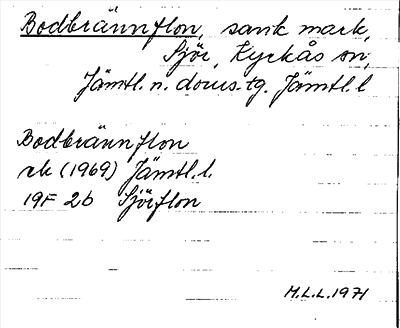 Bodbrännflon, sank mark,
Sjör, Kyrkås sn,
Jämtl. n. doms.tg. Jämtl. l
Bodbrännflon
rk (1969) Jämtl. l.
19F 2b Sjörflon
M.L.L. 1971